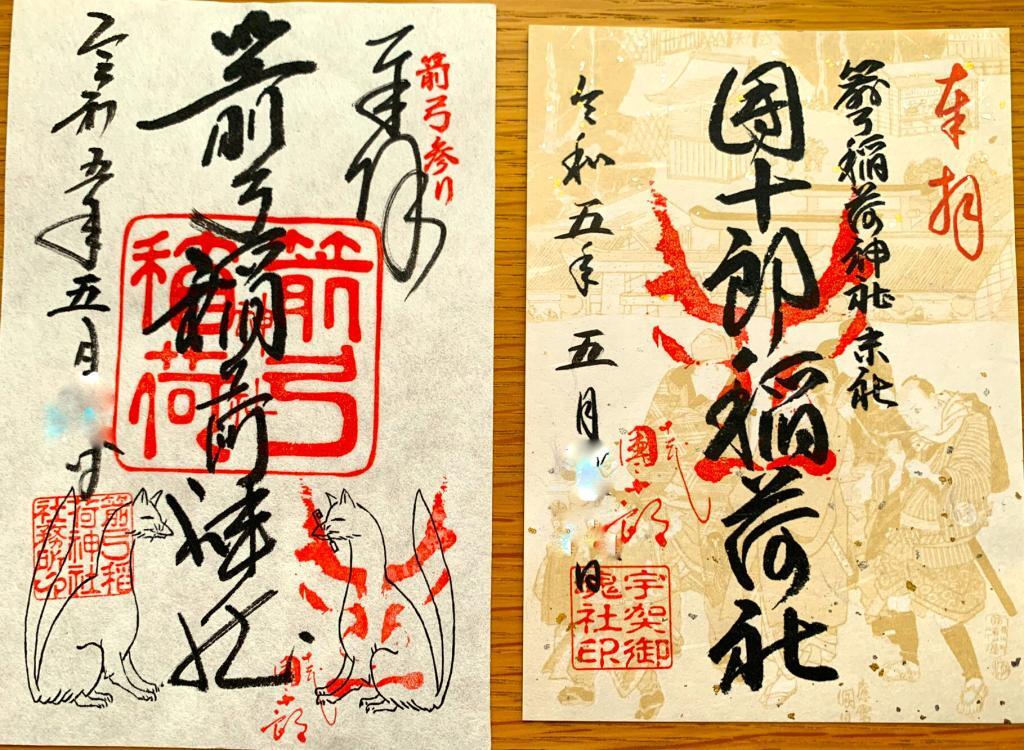 箭弓参り
奉拝
箭弓稲荷神社
箭弓稲荷
令和五年五月
日
箭弓稲荷神社社務所印
團十郎
奉拝
箭弓稲荷神社末社
團十郎稲荷社
令和五年五月
日
團十郎
宇賀御魂社印